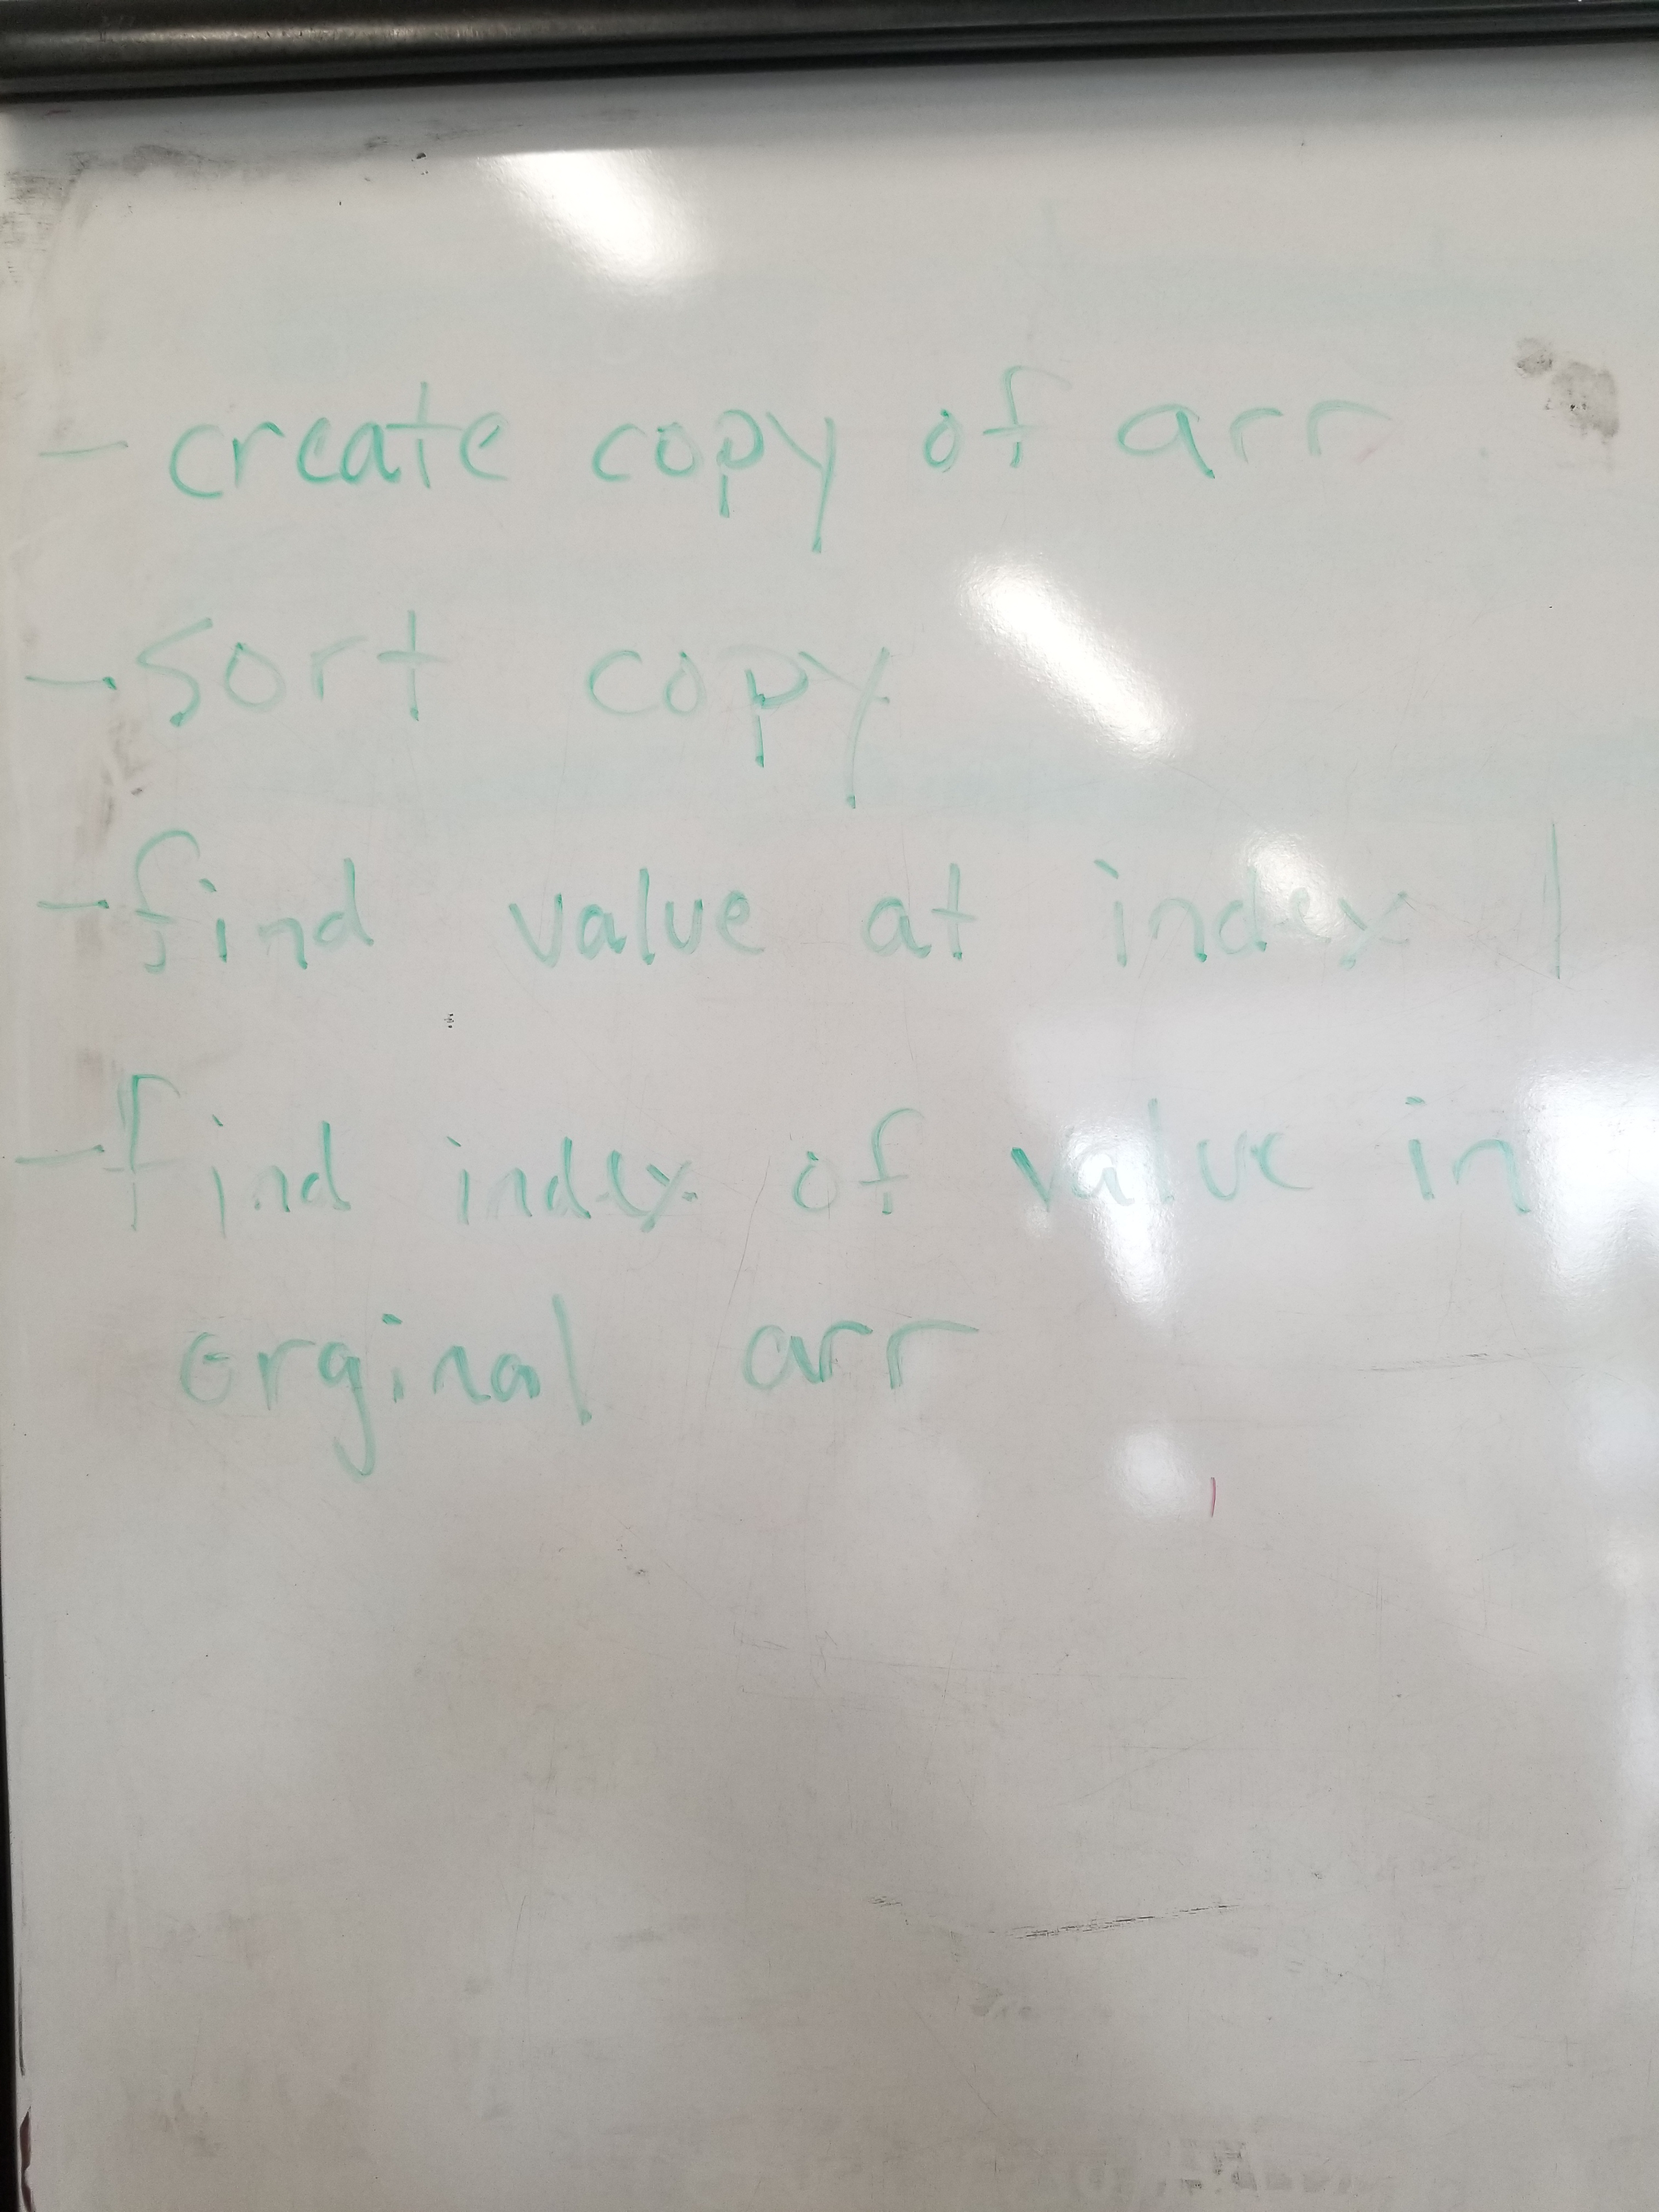 - create copy of arr
- sort copy
- find value at index 1
- find index of value in
orginal arr